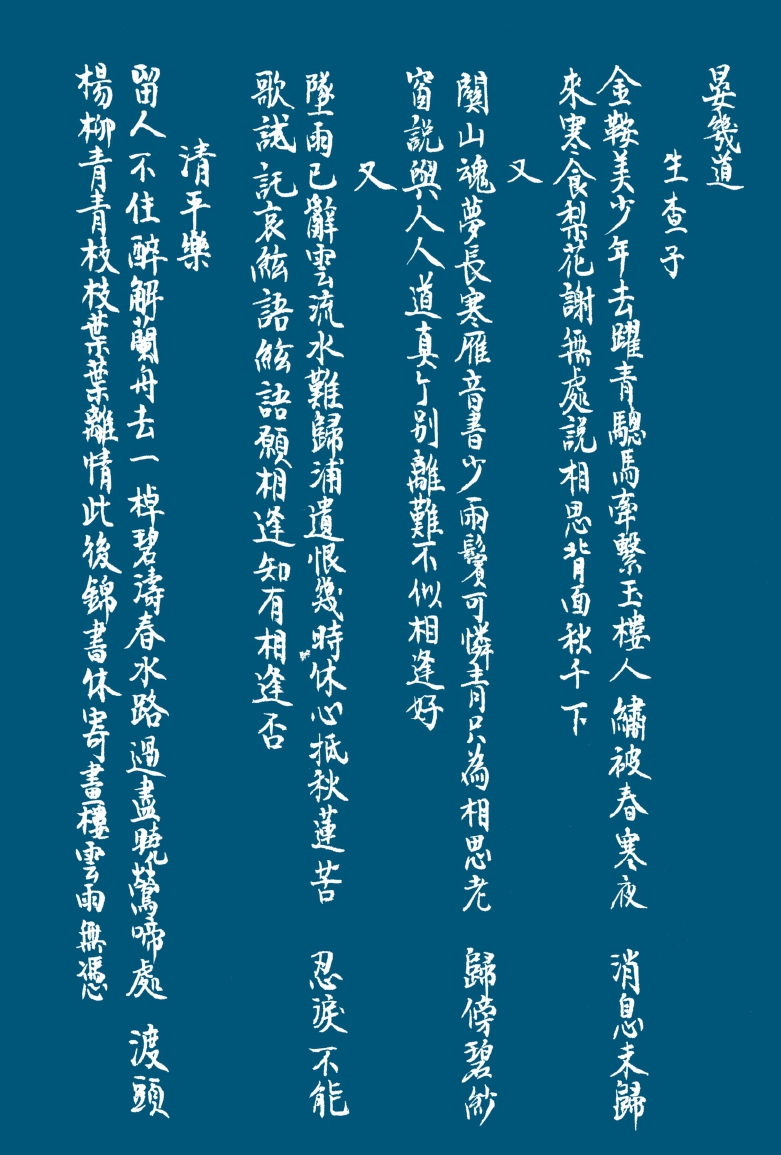 晏幾道
生查子
金鞍美少年去躍青驄馬牽繫玉樓人 繡被春寒夜 消息未歸
來寒食梨花謝無處說相思背面秋千下
又
關山魂夢長寒雁音書少兩鬢可憐青只為相思老 歸傍碧紗
窗說與人人道真个別離難不似相逢好
又
墜雨已辭雲流水難歸浦遺恨幾時休心抵秋蓮苦 忍淚不能
歌試託哀絃語絃語願相逢知有相逢否
清平樂
留人不住醉解蘭舟去一棹碧濤春水路過盡曉鶯啼處 渡頭
楊柳青青枝枝葉葉離情此後錦書休寄畫樓雲雨無憑